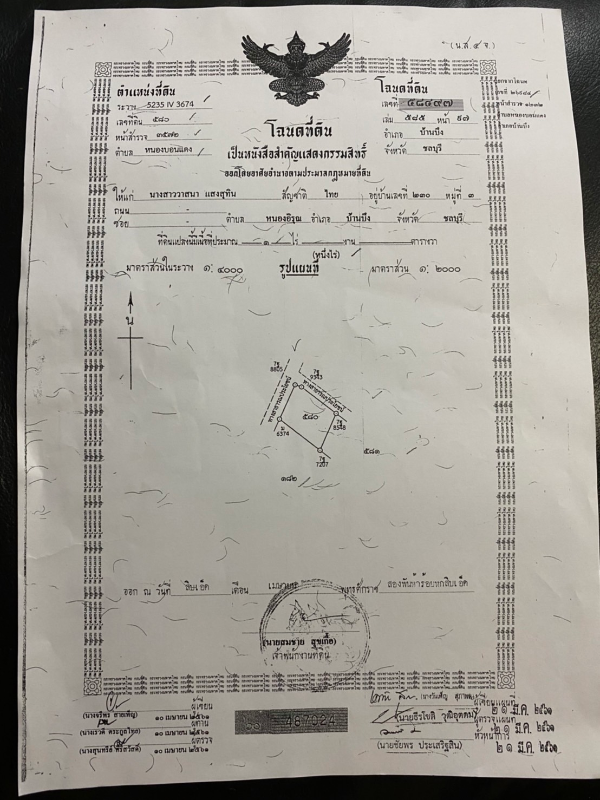 (น.ส. ๔ จ.)
ตำแหน่งที่ดิน
ระวาง 5235 IV 3674
เลขที่ดิน ๕๘๐
หน้าสำรวจ ๓๕๗๒
ตำบล หนองบอนแดง
โฉนดที่ดิน
เลขที่ ๔๘๔๙๗
เล่ม ๕๘๕ หน้า ๙๗
อำเภอ บ้านบึง
จังหวัด ชลบุรี
โฉนดที่ดิน
เป็นหนังสือสำคัญแสดงกรรมสิทธิ์
ออกโดยอาศัยอำนาจตามประมวลกฎหมายที่ดิน
ให้แก่ นางสาววาสนา แสงสุทิน สัญชาติ ไทย อยู่บ้านเลขที่ ๒๓๐ หมู่ที่ ๓
ถนน
ซอย ตำบล หนองอิรุณ อำเภอ บ้านบึง จังหวัด ชลบุรี
ที่ดินแปลงนี้มีเนื้อที่ประมาณ ๑ ไร่ งาน ตารางวา
(หนึ่งไร่)
มาตราส่วนในระวาง ๑: ๔๐๐๐ รูปแผนที่ มาตราส่วน ๑: ๒๐๐๐
น
7ฐ
8805
7ฐ
9343
ทางสาธารณประโยชน์
ทางสาธารณประโยชน์
๕๘๐
7ฐ
8548
6374
7ฐ
7207
๕๘๑
๑๘๒
ออก ณ วันที่ สิบเอ็ด เดือน เมษายน พุทธศักราช สองพันห้าร้อยหกสิบเอ็ด
(นายสมชาย สุขเกื้อ)
เจ้าพนักงานที่ดิน
ผู้เขียน
๑๐ เมษายน ๒๕๖๑
ผู้ทาน
๑๐ เมษายน ๒๕๖๑
ผู้ตรวจ
๑๐ เมษายน ๒๕๖๑
467024
ผู้เขียนแผนที่
๒๑ มี.ค. ๒๕๖๑
(นายธีรโชติ วุฒิอุดตม)
ผู้ตรวจแผนที่
๒๑ มี.ค. ๒๕๖๑
หัวหน้าการ
(นายชัยพร ประเสริฐสิน)
๒๑ มี.ค. ๒๕๖๑